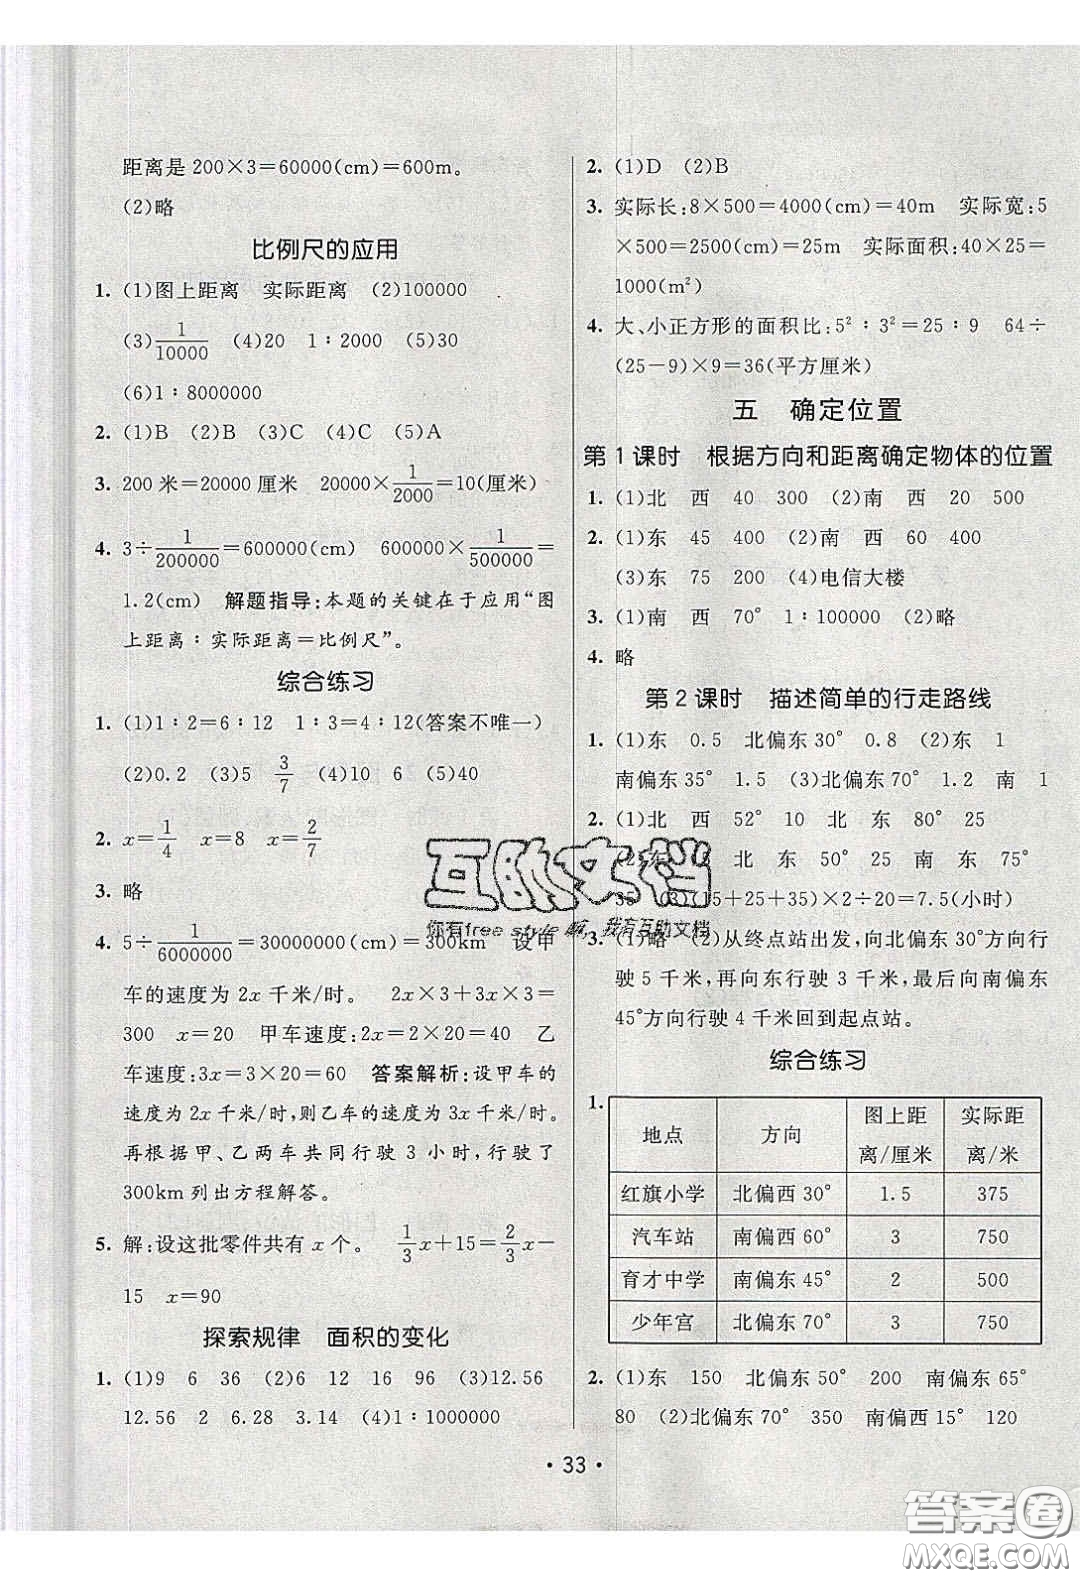 距离是 200×3=60000(cm)=600m。
(2)略
比例尺的应用
1. (1)图上距离 实际距离 (2)100000
(3)1/10000 (4)20 1∶2000 (5)30
(6)1∶8000000
2. (1)B (2)B (3)C (4)C (5)A
3. 200 米=20000 厘米 20000×1/2000=10(厘米)
4. 3÷1/200000=600000(cm) 600000×1/500000=
1.2(cm) 解题指导:本题的关键在于应用“图
上距离∶实际距离=比例尺”。
综合练习
1. (1)1∶2=6∶12 1∶3=4∶12(答案不唯一)
(2)0.2 (3)5 3/7 (4)10 6 (5)40
2. x=1/4 x=8 x=2/7
3. 略
4. 5÷1/6000000=30000000(cm)=300km 设甲
车的速度为 2x 千米/时。 2x×3+3x×3=
300 x=20 甲车速度:2x=2×20=40 乙
车速度:3x=3×20=60 答案解析:设甲车的
速度为 2x 千米/时,则乙车的速度为 3x 千米/时。
再根据甲、乙两车共同行驶 3 小时,行驶了
300km 列出方程解答。
5. 解:设这批零件共有 x 个。 1/3x+15=2/3x-
15 x=90
探索规律 面积的变化
1. (1)9 6 36 (2)6 12 16 96 (3)12.56
12.56 2 6.28 3.14 (4)1∶1000000
2. (1)D (2)B
3. 实际长:8×500=4000(cm)=40m 实际宽:5
×500=2500(cm)=25m 实际面积:40×25=
1000(m²)
4. 大、小正方形的面积比:5²∶3²=25∶9 64÷
(25-9)×9=36(平方厘米)
五 确定位置
第 1 课时 根据方向和距离确定物体的位置
1. (1)北 西 40 300 (2)南 西 20 500
2. (1)东 45 400 (2)南 西 60 400
(3)东 75 200 (4)电信大楼
3. (1)南 西 70° 1∶100000 (2)略
4. 略
第 2 课时 描述简单的行走路线
1. (1)东 0.5 北偏东30° 0.8 (2)东 1
南偏东35° 1.5 (3)北偏东70° 1.2 南 1
2. (1)北 西 52° 10 北 东 80° 25
(2)东 北 东 50° 25 南 东 75°
35 (3)(15+25+35)×2÷20=7.5(小时)
3. (1)略 (2)从终点站出发,向北偏东 30°方向行
驶 5 千米,再向东行驶 3 千米,最后向南偏东
45°方向行驶 4 千米回到起点站。
综合练习
1.
地点 方向 图上距离/厘米 实际距离/米
红旗小学 北偏西 30° 1.5 375
汽车站 南偏西 60° 3 750
育才中学 南偏东 45° 2 500
少年宫 北偏东 70° 3 750
2. (1)东 150 北偏东50° 200 南偏东65°
80 (2)北偏东70° 350 南偏西15° 120
• 33 •
互助文档
你有free style啊,我有互助文档
答案圈
MXQE.COM